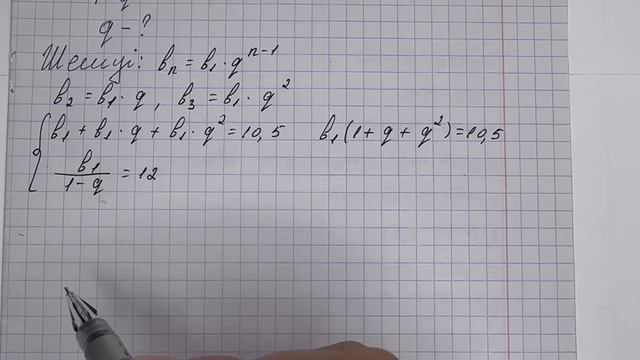 q - ?
Шешуі: bₙ = b₁ · qⁿ⁻¹
b₂ = b₁ · q , b₃ = b₁ · q²
{ b₁ + b₁ · q + b₁ · q² = 10,5 b₁ (1 + q + q²) = 10,5
b₁ / (1 - q) = 12